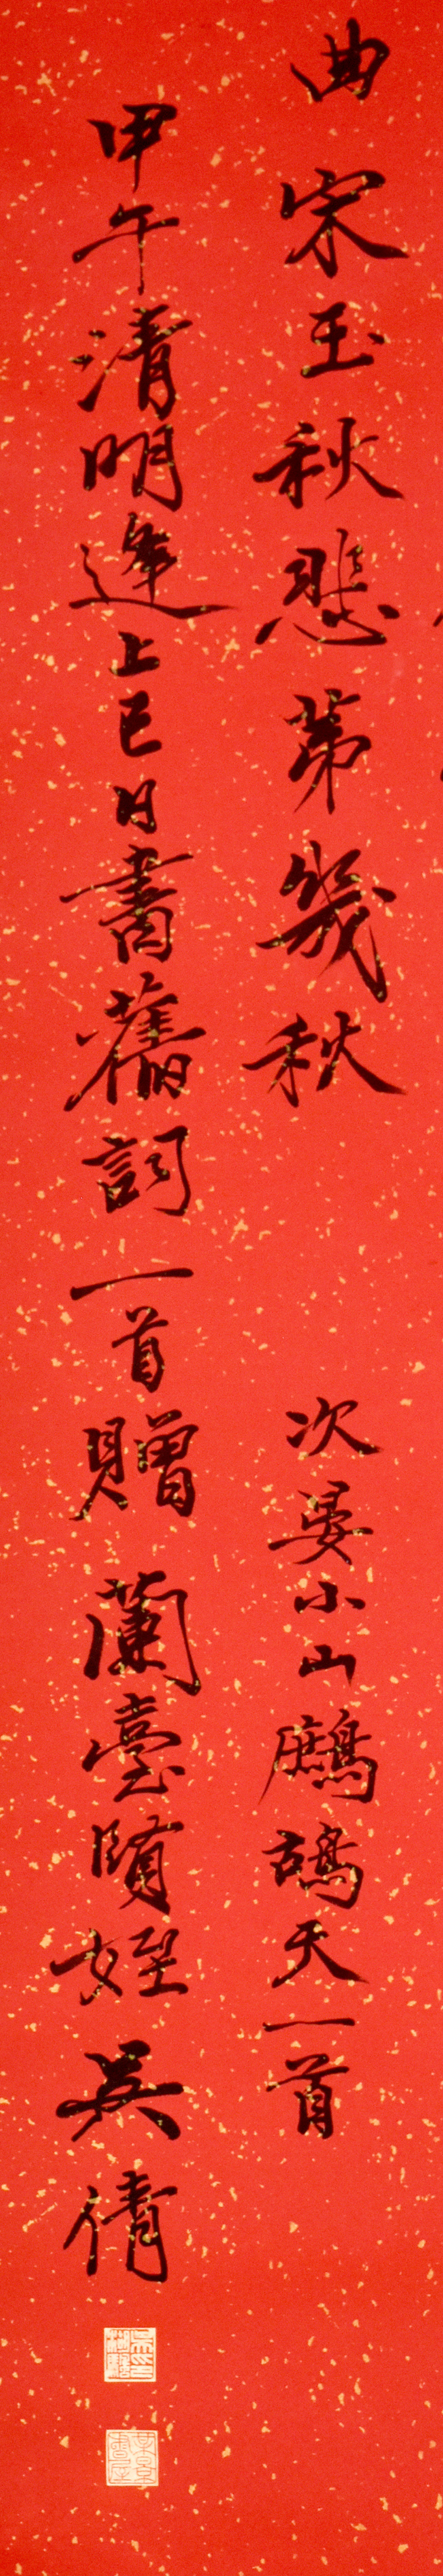 曲宋玉秋悲第幾秋　次晏小山鷓鴣天一首
甲午清明逢上巳日書舊詞一首贈蘭臺賢姪吳倩